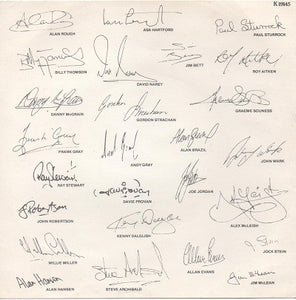 K 19845
ALAN ROUGH
ASA HARTFORD
PAUL STURROCK
BILLY THOMSON
DAVID NAREY
JIM BETT
ROY AITKEN
DANNY McGRAIN
GORDON STRACHAN
GRAEME SOUNESS
FRANK GRAY
ANDY GRAY
ALAN BRAZIL
JOHN WARK
RAY STEWART
DAVIE PROVAN
JOE JORDAN
JOHN ROBERTSON
KENNY DALGLISH
ALEX McLEISH
WILLIE MILLER
ALLAN EVANS
JOCK STEIN
ALAN HANSEN
STEVE ARCHIBALD
JIM McLEAN